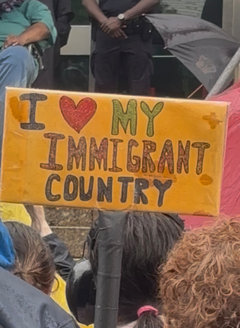 I ❤ MY
IMMIGRANT
COUNTRY